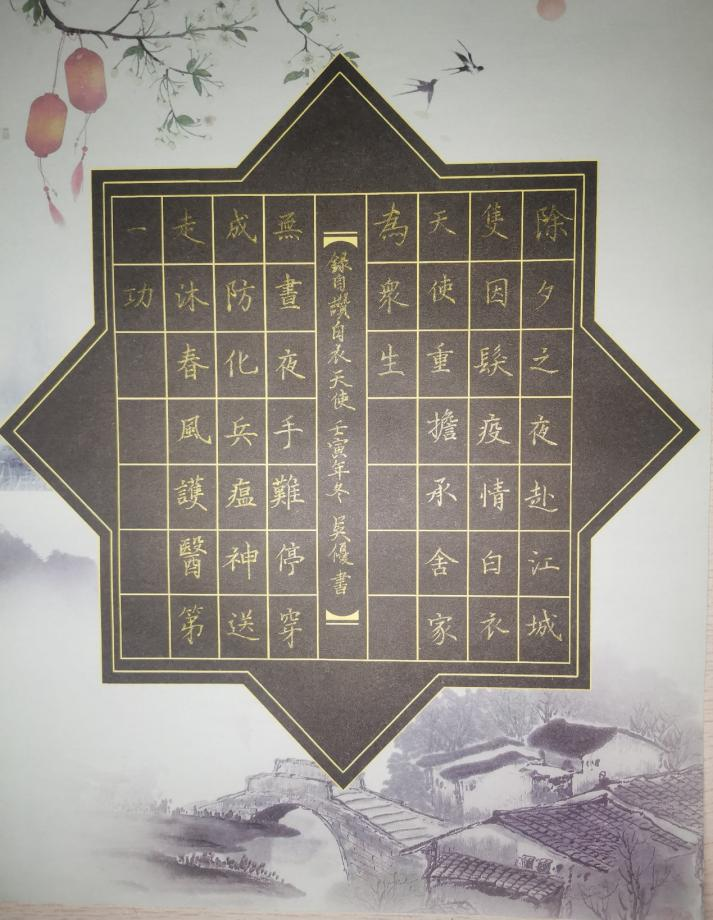 除夕之夜赴江城
隻因髮疫情白衣
天使重擔承舍家
為衆生
錄自讚白衣天使 壬寅年冬 吳優書
無晝夜手難停穿
成防化兵瘟神送
走沐春風護醫第
一功